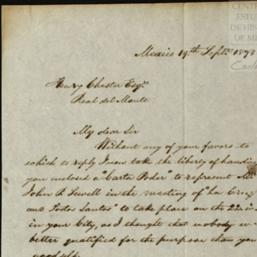 Mexico 19th Sept. 187
Henry Chester Esqr.
Real del Monte
My dear Sir
Without any of your favors to
which to reply I now take the liberty of handing
you enclosed a "Carta Poder" to represent Mr.
John P. Sewell in the meeting of "La Cruz
and Todos Santos" to take place on the 22 inst
in your City, as I thought that nobody is
better qualified for the purpose than your
good self.